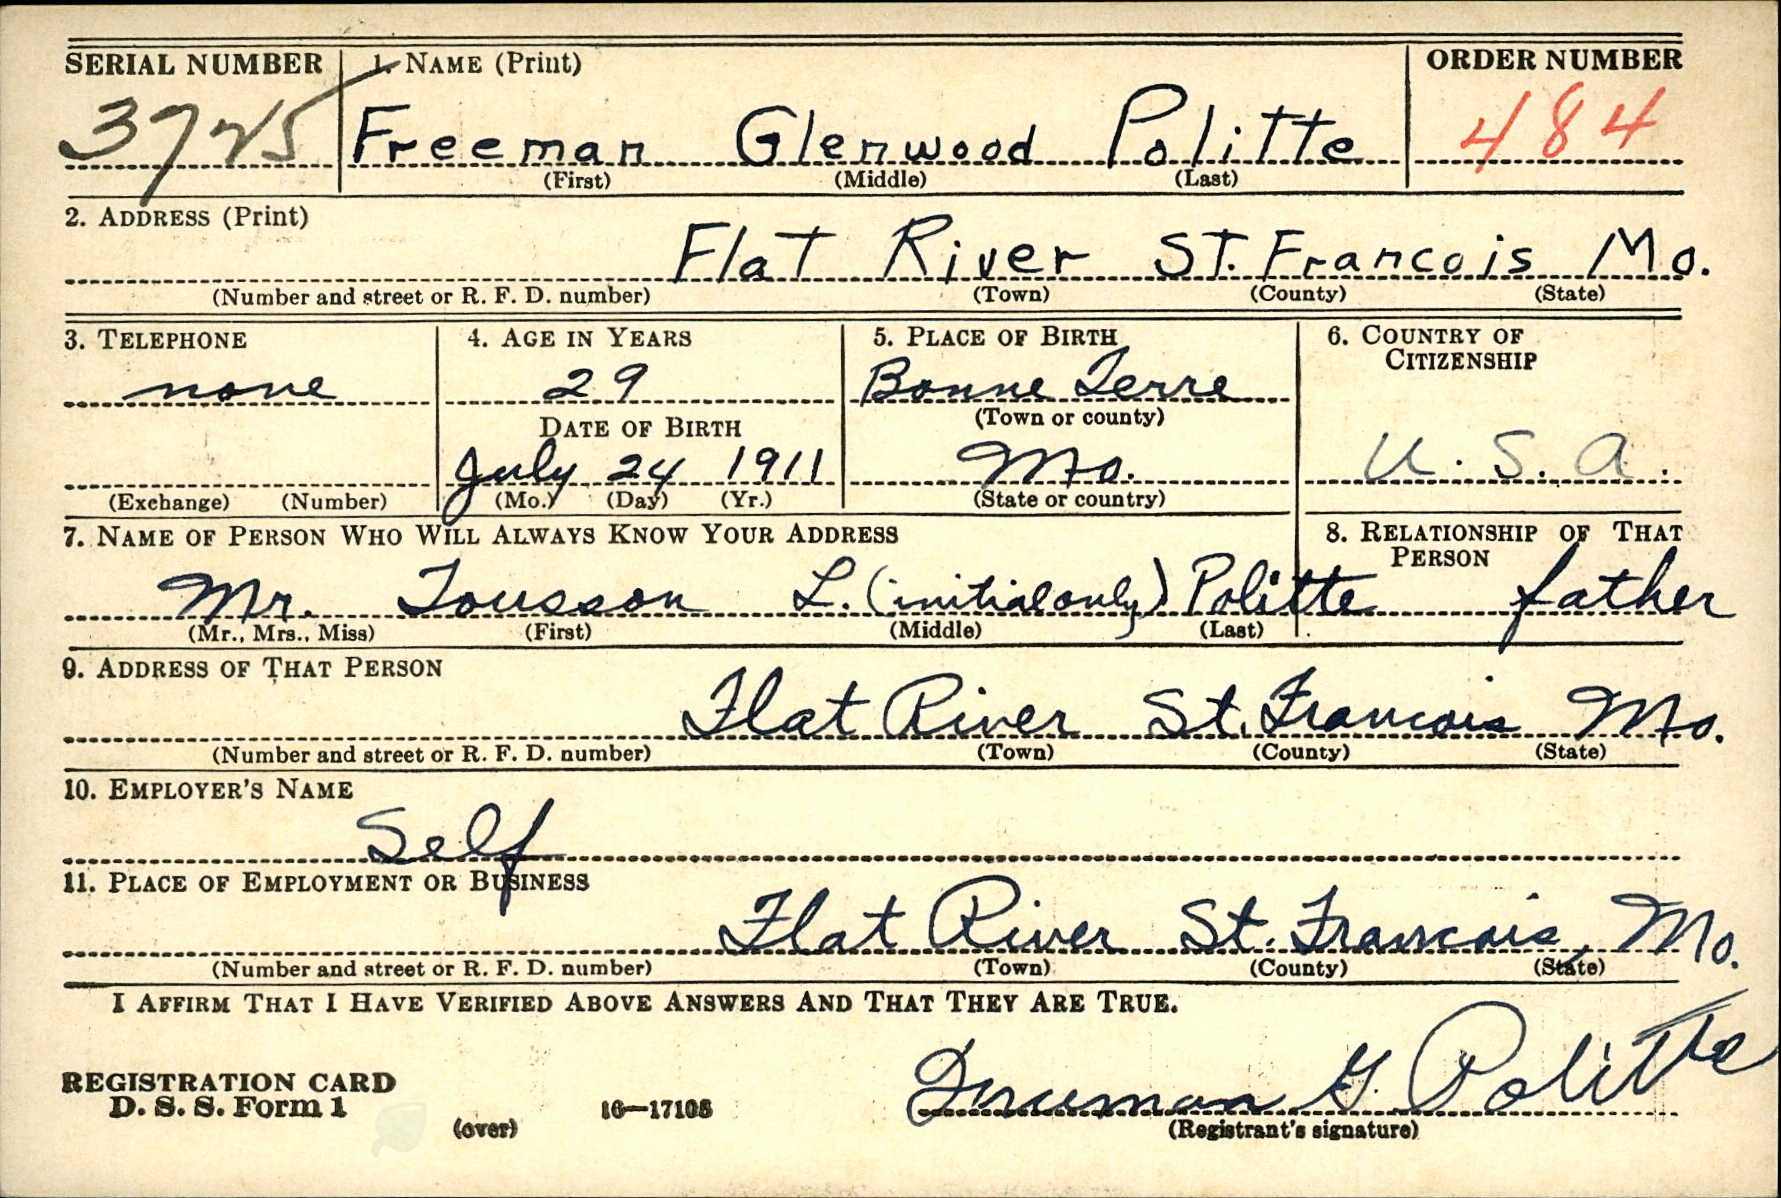 SERIAL NUMBER 1. NAME (Print) ORDER NUMBER
3725 Freeman Glenwood Politte 484
(First) (Middle) (Last)
2. ADDRESS (Print)
Flat River St. Francois Mo.
(Number and street or R. F. D. number) (Town) (County) (State)
3. TELEPHONE 4. AGE IN YEARS 5. PLACE OF BIRTH 6. COUNTRY OF
CITIZENSHIP
none 29 Bonne Terre
DATE OF BIRTH (Town or county)
July 24 1911 Mo. U. S. A.
(Exchange) (Number) (Mo.) (Day) (Yr.) (State or country)
7. NAME OF PERSON WHO WILL ALWAYS KNOW YOUR ADDRESS 8. RELATIONSHIP OF THAT
PERSON
Mr. Tousson L. (initial only) Politte father
(Mr., Mrs., Miss) (First) (Middle) (Last)
9. ADDRESS OF THAT PERSON
Flat River St. Francois Mo.
(Number and street or R. F. D. number) (Town) (County) (State)
10. EMPLOYER'S NAME
Self
11. PLACE OF EMPLOYMENT OR BUSINESS
Flat River St. Francois, Mo.
(Number and street or R. F. D. number) (Town) (County) (State)
I AFFIRM THAT I HAVE VERIFIED ABOVE ANSWERS AND THAT THEY ARE TRUE.
REGISTRATION CARD
D. S. S. Form 1 Freeman G. Politte
(over) 16—17105 (Registrant's signature)